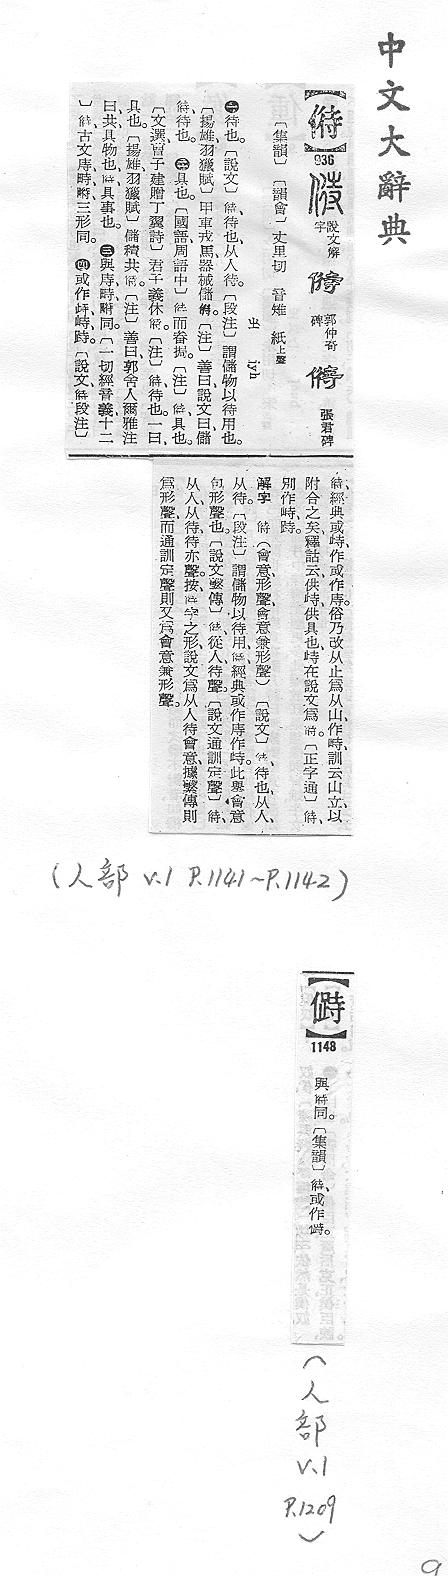 中文大辭典
【偫】
936
說文解字
郭仲奇碑
張君碑
〔集韻〕〔韻會〕丈里切 音雉 紙上聲
ㄓ jyh
㊀待也。〔說文〕偫、待也、从人待。〔段注〕謂儲物以待用也。
〔揚雄羽獵賦〕甲車戎馬、器械儲偫。〔注〕善曰、說文曰、儲
偫、待也。㊁具也。〔國語周語中〕偫而畚挶。〔注〕偫、具也。
〔文選曹子建贈丁翼詩〕君子義休偫。〔注〕偫、待也、一曰、
具也。〔揚雄羽獵賦〕儲積共偫。〔注〕善曰、郭舍人爾雅注
曰、共、具物也、偫、具事也。㊂與庤同。〔一切經音義十二
〕偫、古文庤、三形同。㊃或作峙。〔說文、偫、段注〕
偫、經典或作或作庤、俗乃改从止為从山作峙、訓云山立、以
附合之矣、釋詁云、供、峙、供、具也、峙在說文為偫。〔正字通〕偫、
別作峙。
解字 偫(會意形聲、會意兼形聲)〔說文〕偫、待也、从人
从待。〔段注〕謂儲物以待用、偫、經典或作庤作峙。此舉會意
包形聲也。〔說文繫傳〕偫、從人待聲。〔說文通訓定聲〕偫、
从人从待、待亦聲。按、偫字之形、說文為从人待會意、據繫傳則
為形聲、而通訓定聲則又為會意兼形聲。
(人部 v.1 P.1141~P.1142)
【儔】
1148
與偫同。〔集韻〕偫、或作
(人部 v.1 P.1209)
9